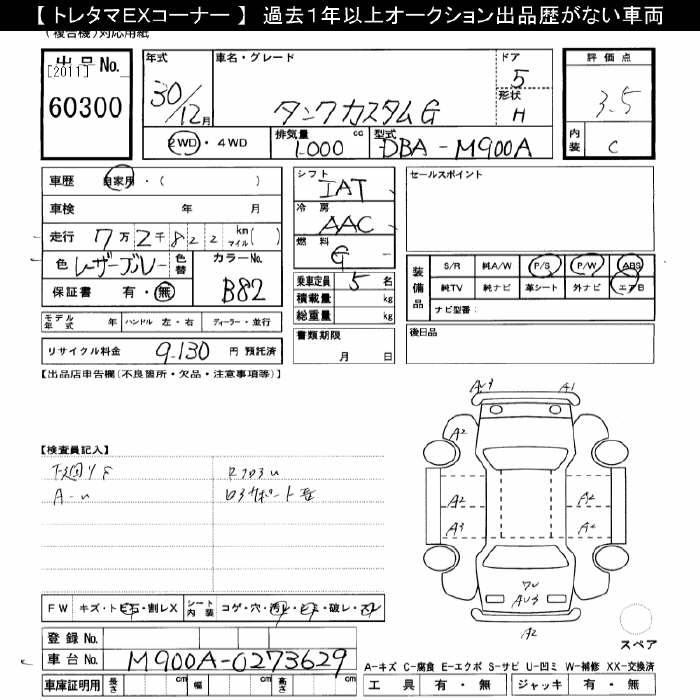 【トレタマEXコーナー】 過去1年以上オークション出品歴がない車両
(複合機)対応用紙
出品 No.
[2011]
60300
年式 車名・グレード ドア 評価点
30/12月 タンクカスタムG 5 3.5
形状 H
2WD・4WD 排気量 1.000 cc 型式 DBA-M900A 内装 C
車歴 自家用・( )
シフト IAT
セールスポイント
車検 年 月
冷房 AAC
走行 7万2千822 km マイル( )
燃料 G
色 レーザーブルー 色替 カラーNo. B82
保証書 有・無
乗車定員 5 名
積載量 kg
総重量 kg
装備品 S/R 純A/W P/S P/W ABS
純TV 純ナビ 革シート 外ナビ エアB
ナビ型番:
モデル年式 年 ハンドル 左・右 ディーラー・並行
書類期限 月 日
後日品
リサイクル料金 9.130 円 預託済
【出品店申告欄(不良箇所・欠品・注意事項等)】
AU3 A1
A2
【検査員記入】
下廻りS
A-U
A2 A2
A3 A2
AU3
A2
FW キズ・トビ石・割レX シート内装 コゲ・穴・汚レ・シミ・破レ・スレ
スペア
登録 No.
車台 No. M900A-0273629
A-キズ C-腐食 E-エクボ S-サビ U-凹ミ W-補修 XX-交換済
車庫証明用 長さ cm 幅 cm 高さ cm 工具 有・無 ジャッキ 有・無